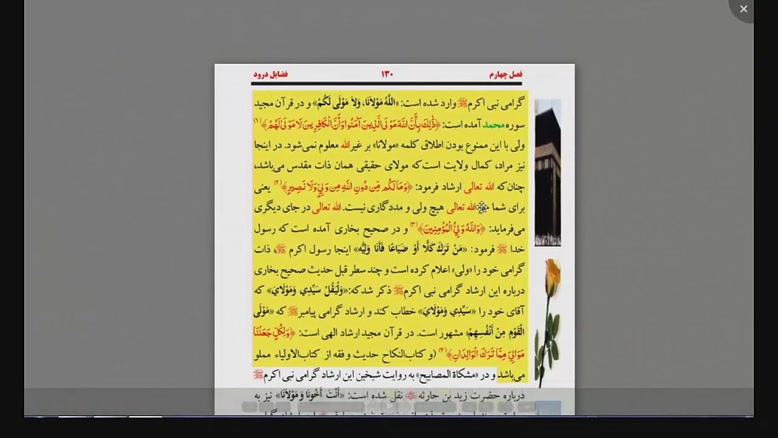 فصل چهارم ۱۳۰ فضایل درود
گرامی نبی اکرم ﷺ وارد شده است: «اللَّهُ مَوْلاَنَا، وَلاَ مَوْلَى لَكُمْ» و در قرآن مجید
سوره محمد آمده است: ﴿ذَٰلِكَ بِأَنَّ اللَّهَ مَوْلَى الَّذِينَ آمَنُوا وَأَنَّ الْكَافِرِينَ لَا مَوْلَىٰ لَهُمْ﴾(۱)
ولی با این ممنوع بودن اطلاق کلمه «مولانا» بر غیر الله معلوم نمی‌شود. در اینجا
نیز مراد، کمال ولایت است که مولای حقیقی همان ذات مقدس می‌باشد،
چنان‌که الله تعالی ارشاد فرمود: ﴿وَمَا لَكُم مِّن دُونِ اللَّهِ مِن وَلِيٍّ وَلَا نَصِيرٍ﴾(۲) یعنی
برای شما الله تعالی هیچ ولی و مددگاری نیست. الله تعالی در جای دیگری
می‌فرماید: ﴿وَاللَّهُ وَلِيُّ الْمُؤْمِنِينَ﴾(۳) و در صحیح بخاری آمده است که رسول
خدا ﷺ فرمود: «مَنْ تَرَكَ كَلًّا أَوْ ضَيَاعًا فَأَنَا وَلِيُّهُ» اینجا رسول اکرم ﷺ، ذات
گرامی خود را «ولی» اعلام کرده است و چند سطر قبل حدیث صحیح بخاری
درباره این ارشاد گرامی نبی اکرم ﷺ ذکر شد که: «وَلْيَقُلْ سَيِّدِي وَمَوْلَايَ» که
آقای خود را «سَيِّدِي وَمَوْلَايَ» خطاب کند و ارشاد گرامی پیامبر ﷺ که «مَوْلَى
الْقَوْمِ مِنْ أَنْفُسِهِمْ» مشهور است. در قرآن مجید ارشاد الهی است: ﴿وَلِكُلٍّ جَعَلْنَا
مَوَالِيَ مِمَّا تَرَكَ الْوَالِدَانِ﴾(۴) (و کتاب‌النکاح حدیث و فقه از کتاب‌الاولیاء مملو
می‌باشد و در «مشکاة المصابیح» به روایت شیخین این ارشاد گرامی نبی اکرم ﷺ
درباره حضرت زید بن حارثه نقل شده است: «أَنْتَ أَخُونَا وَمَوْلَانَا» نیز به